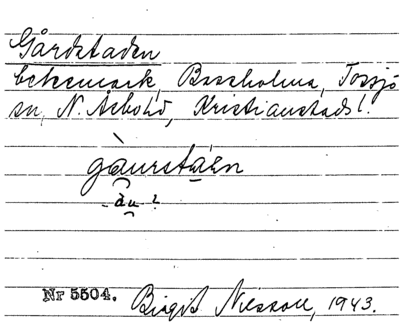 Gårdstaden
betesmark, Boarholma, Tossjö
sn, N. Åsbohd, Kristianstads l.
gàurstáèn
àu ?
Nr 5504. Birgit Nilsson, 1943.